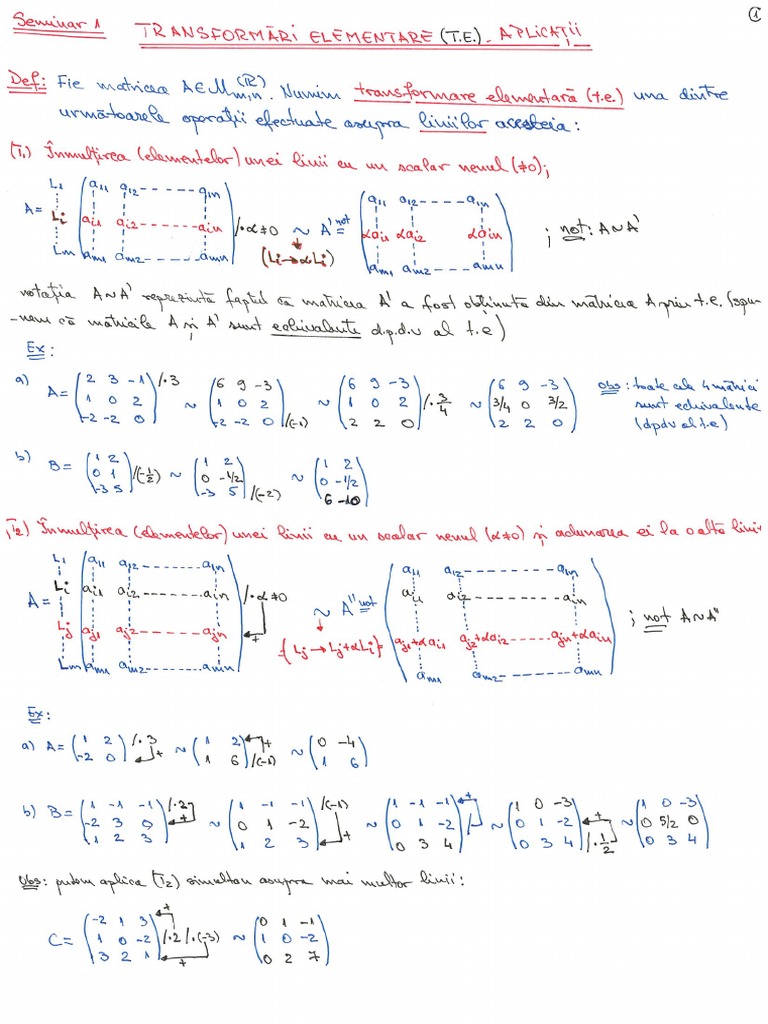 ①
Seminar 1 TRANSFORMĂRI ELEMENTARE (T.E.) - APLICAȚII
Def: Fie matricea A∈M_{m,n}(ℝ). Numim transformare elementară (t.e.) una dintre
următoarele operații efectuate asupra liniilor acesteia:
(T₁) Înmulțirea (elementelor) unei linii cu un scalar nenul (≠0);
L1 a11 a12 ----- a1n   a11 a12 ---- a1n
A= Li ai1 ai2 ------ ain /·α≠0 ~ A' not= αai1 αai2 αain ; not: A~A'
(Li→αLi)
Lm am1 am2 ---- amn   am1 am2 ---- amn
notația A~A' reprezintă faptul că matricea A' a fost obținută din matricea A prin t.e. (spu-
-nem că matricile A și A' sunt echivalente d.p.d.v al t.e)
Ex:
a) A= (2 3 -1; 1 0 2; -2 -2 0) /·3 ~ (6 9 -3; 1 0 2; -2 -2 0) /(-1) ~ (6 9 -3; 1 0 2; 2 2 0) /·3/4 ~ (6 9 -3; 3/4 0 3/2; 2 2 0) Obs: toate cele 4 matrici
sunt echivalente
(dpdv al t.e)
b) B= (1 2; 0 1; -3 5) /(-1/2) ~ (1 2; 0 -1/2; -3 5) /(-2) ~ (1 2; 0 -1/2; 6 -10)
(T₂) Înmulțirea (elementelor) unei linii cu un scalar nenul (α≠0) și adunarea ei la o altă lini-
L1 a11 a12 ------ a1n   a11 a12 ------ a1n
Li ai1 ai2 ------ ain /·α≠0   ai1 ai2 ------ ain
A= ~ A'' not= ; not A~A''
Lj aj1 aj2 ------ ajn + {Lj→Lj+αLi}= aj1+αai1 aj2+αai2 ------ ajn+αain
Lm am1 am2 ---- amn   am1 am2 ------ amn
Ex:
a) A= (1 2; -2 0) /·3 + ~ (1 2; 1 6) + /(-1) ~ (0 -4; 1 6)
b) B= (1 -1 -1; -2 3 0; 1 2 3) /·2 + ~ (1 -1 -1; 0 1 -2; 1 2 3) /(-1) + ~ (1 -1 -1; 0 1 -2; 0 3 4) + ~ (1 0 -3; 0 1 -2; 0 3 4) + /·1/2 ~ (1 0 -3; 0 5/2 0; 0 3 4)
Obs: putem aplica (T₂) simultan asupra mai multor linii:
C= (-2 1 3; 1 0 -2; 3 2 1) + /·2 /·(-3) + ~ (0 1 -1; 1 0 -2; 0 2 7)